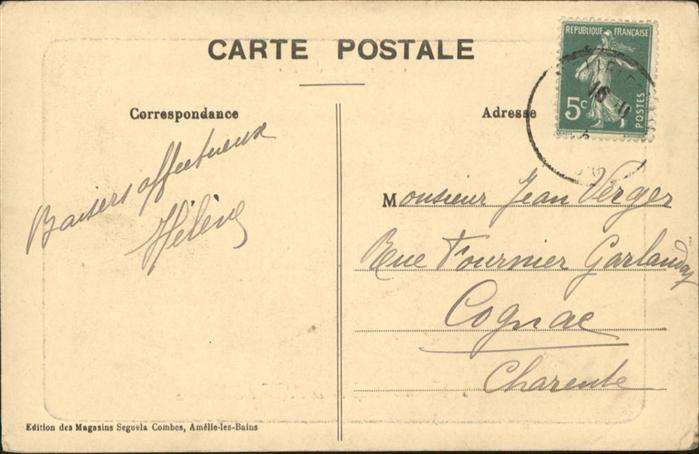 CARTE POSTALE
REPUBLIQUE FRANÇAISE
5c
POSTES
16
Correspondance
Adresse
Baisers affectueux
Hélène
Monsieur Jean Verger
Rue Fournier Garlanday
Cognac
Charente
Edition des Magasins Seguela Combes, Amélie-les-Bains